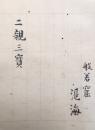 般若窟
滉海
二親三寶